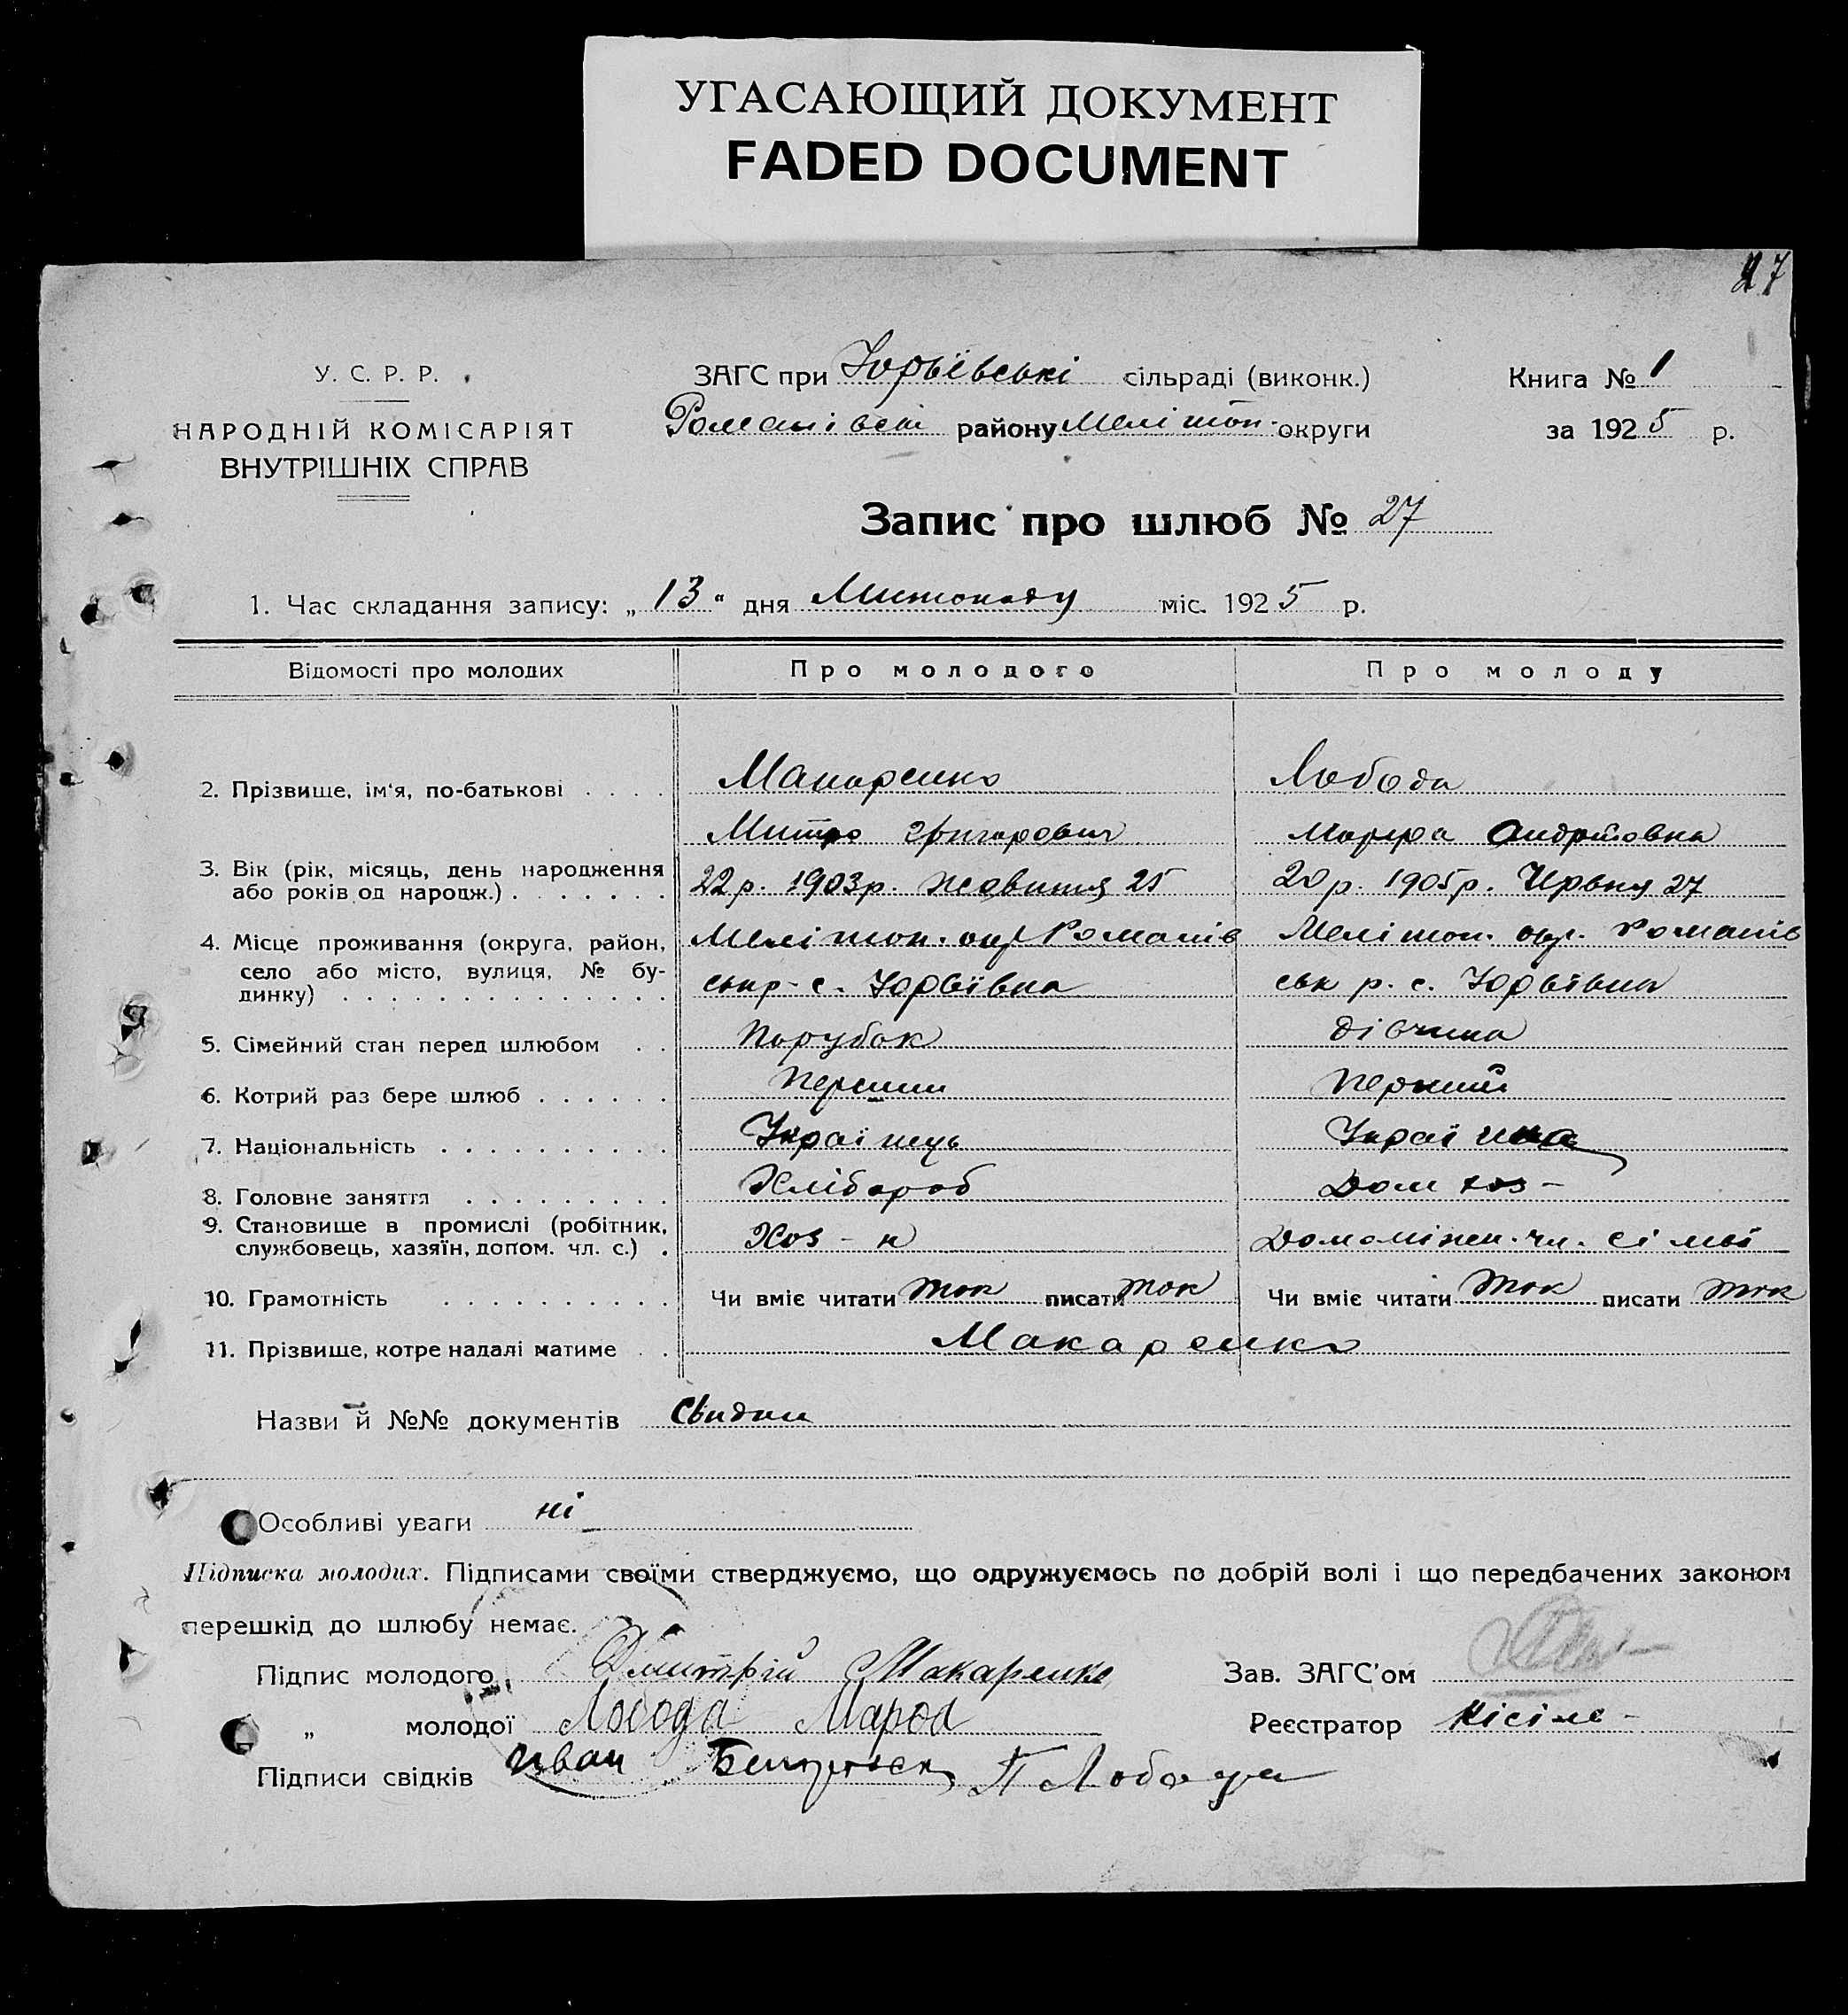 УГАСАЮЩИЙ ДОКУМЕНТ
FADED DOCUMENT
27
У. С. Р. Р.
НАРОДНІЙ КОМІСАРІЯТ
ВНУТРІШНІХ СПРАВ
ЗАГС при Юрьївські сільраді (виконк.)
Романівськ району Мелітоп. округи
Книга № 1
за 1925 р.
Запис про шлюб № 27
1. Час складання запису: „13“ дня Листопаду міс. 1925 р.
Відомості про молодих Про молодого Про молоду
2. Прізвище, ім'я, по-батькові . . . . Макаренко Лобода
Митро Григорович Марфа Андріовна
3. Вік (рік, місяць, день народження
або років од народж.) . . . . . . . 22 р. 1903 р. Жовтня 25 20 р. 1905 р. Червня 27
4. Місце проживання (округа, район, Мелітоп. окр Романів Мелітоп. окр. Романів
село або місто, вулиця, № бу-
динку) . . . . . . . . . . . . . . ськ р. с. Юрьївка ськ р. с. Юрьївка
5. Сімейний стан перед шлюбом . . Парубок дівчина
6. Котрий раз бере шлюб . . . . . . Перший Перший
7. Національність . . . . . . . . . . Українць Українка
8. Головне заняття . . . . . . . . . Хлібороб Дом хоз-
9. Становище в промислі (робітник,
службовець, хазяїн, допом. чл. с.) . Хоз-н Домоміжн. чл. сімьї
10. Грамотність . . . . . . . . . . Чи вміє читати так писати так Чи вміє читати так писати так
11. Прізвище, котре надалі матиме . . Макаренко
Назви й №№ документів Свидки
Особливі уваги ні
Підписка молодих. Підписами своїми стверджуємо, що одружуємось по добрій волі і що передбачених законом
перешкід до шлюбу немає.
Підпис молодого Дмитрій Макаренко Зав. ЗАГС'ом
„ молодої Лобода Марфа Реєстратор Кісіль
Підписи свідків Иван П Лобода